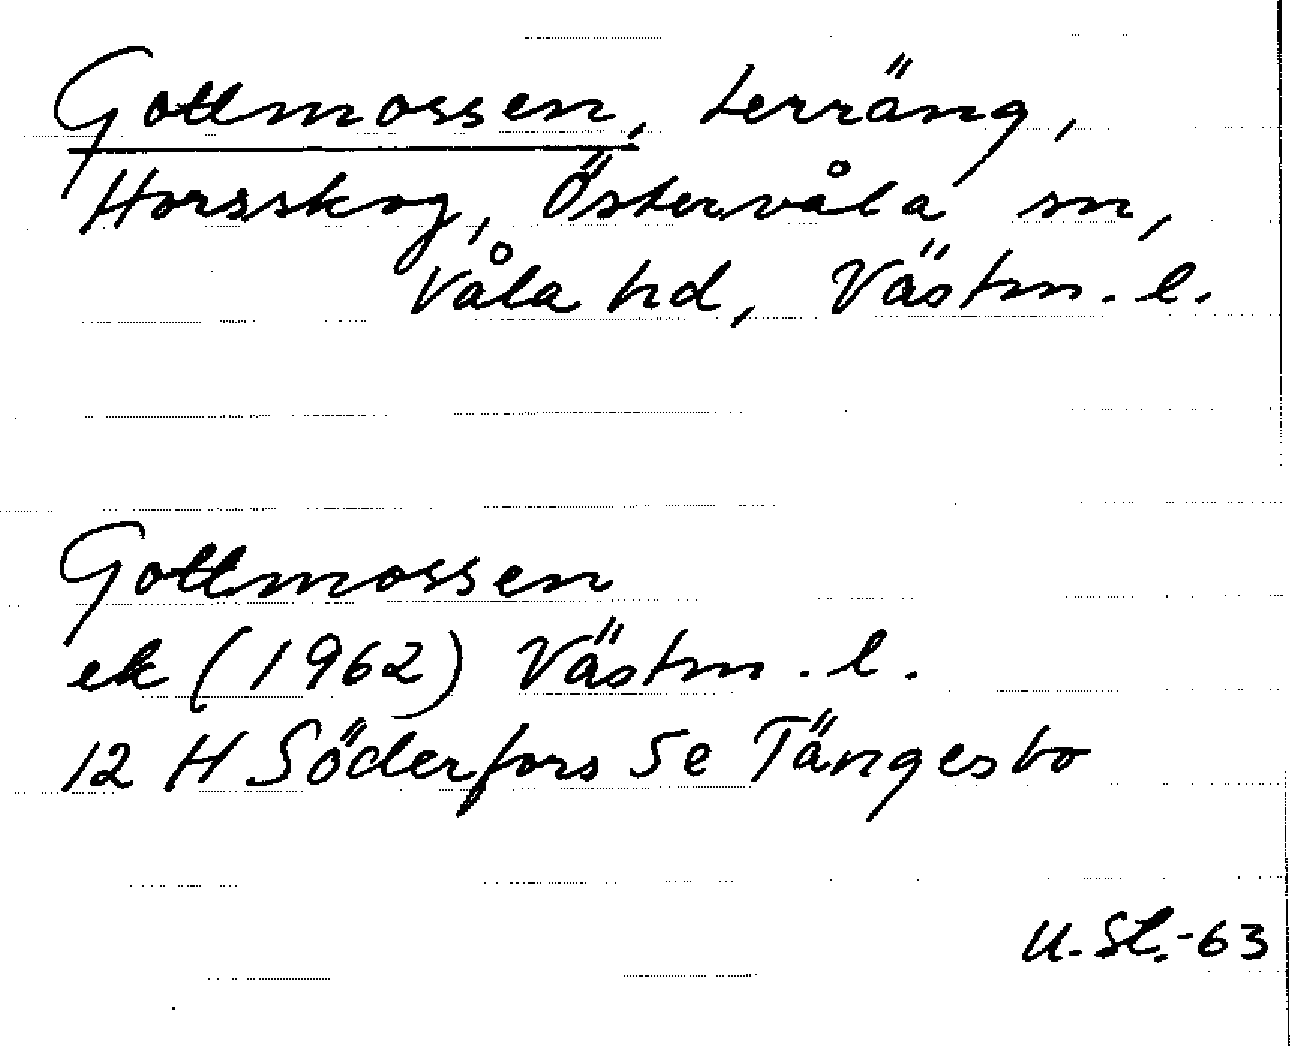 Gottmossen, terräng,
Horsskog, Östervåla sn,
Våla hd, Västm. l.
Gottmossen
ek (1962) Västm. l.
12 H Söderfors 5e Tängesbo
U. St.-63